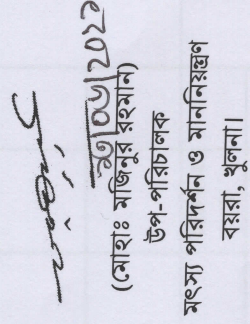 ২৩/০৬/২০২১
(মোহাঃ মজিনুর রহমান)
উপ-পরিচালক
মৎস্য পরিদর্শন ও মাননিয়ন্ত্রণ
বয়রা, খুলনা।